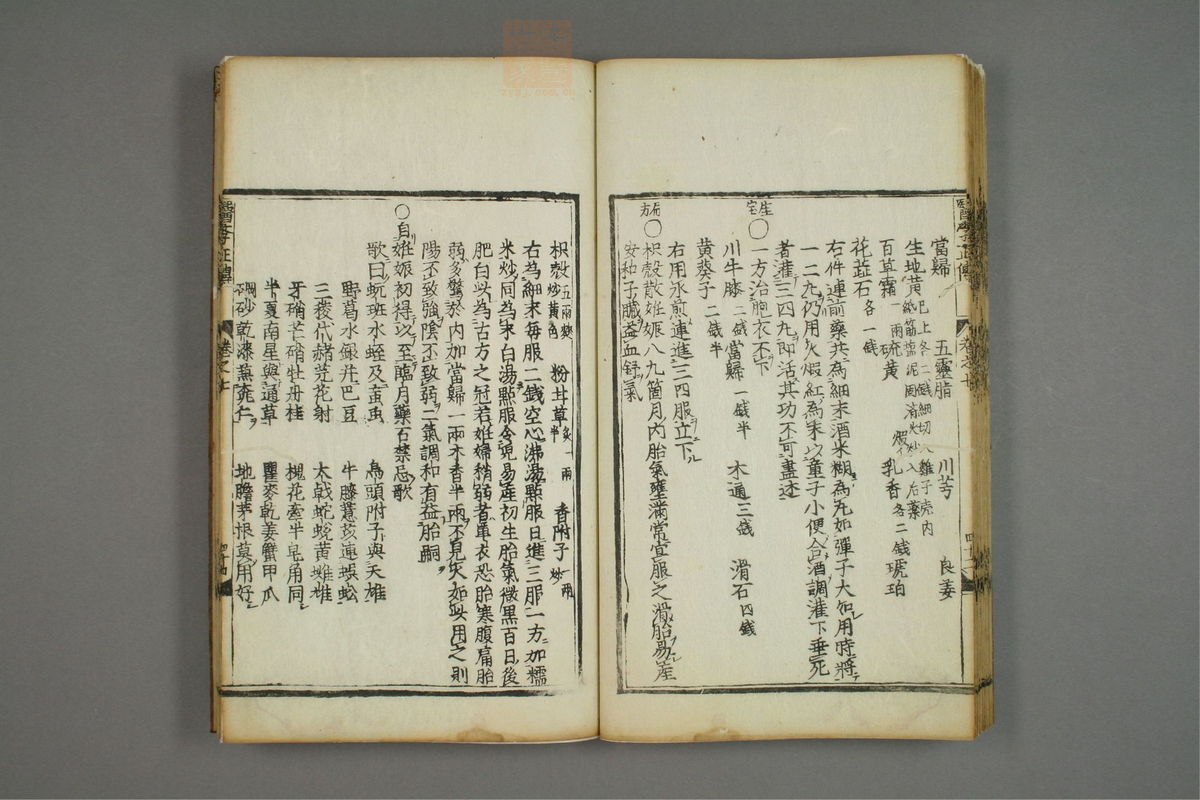 當歸　五靈脂　川芎　良姜
生地黃
百草霜一兩硫黃　煆　乳香各二錢琥珀
花蕋石各一錢
右件連前藥共為細末酒米糊為丸如彈子大每用時將
一二丸仍用火煆紅為末以童子小便合酒調灌下垂死
者灌三四丸即活其功不可盡述
生宝
○一方治胞衣不下
川牛膝二錢當歸一錢半　木通三錢　滑石四錢
黃葵子二錢半
右用水煎連進三四服立下
局方
○枳殼散姙娠八九箇月內胎氣壅滿常宜服之滑胎易產
安和子臟益血舒氣
枳殼五兩麩炒黃色　粉甘草炙一兩半　香附子炒一兩
右為細末每服二錢空心沸湯點服日進三服一方加糯
米炒同為末白湯點服令兒易產初生胎氣微黑百日後
肥白此為古方之冠若姙婦稍弱者單衣恐胎寒腹痛胎
弱多驚於內加當歸一兩木香半兩不見火如此用之則
陽不致強陰不致弱二氣調和有益胎嗣
○自姙娠初得以至臨月藥石禁忌歌
歌曰蚖斑水蛭及䖟虫　烏頭附子與天雄
野葛水銀幷巴豆　牛膝薏苡連蜈蚣
三稜代赭芫花射　大戟蛇蛻黃雄雌
牙硝芒硝牡丹桂　槐花牽牛皂角同
半夏南星與通草　瞿麥乾姜蟹甲爪
硇砂乾漆　地膽茅根莫用好